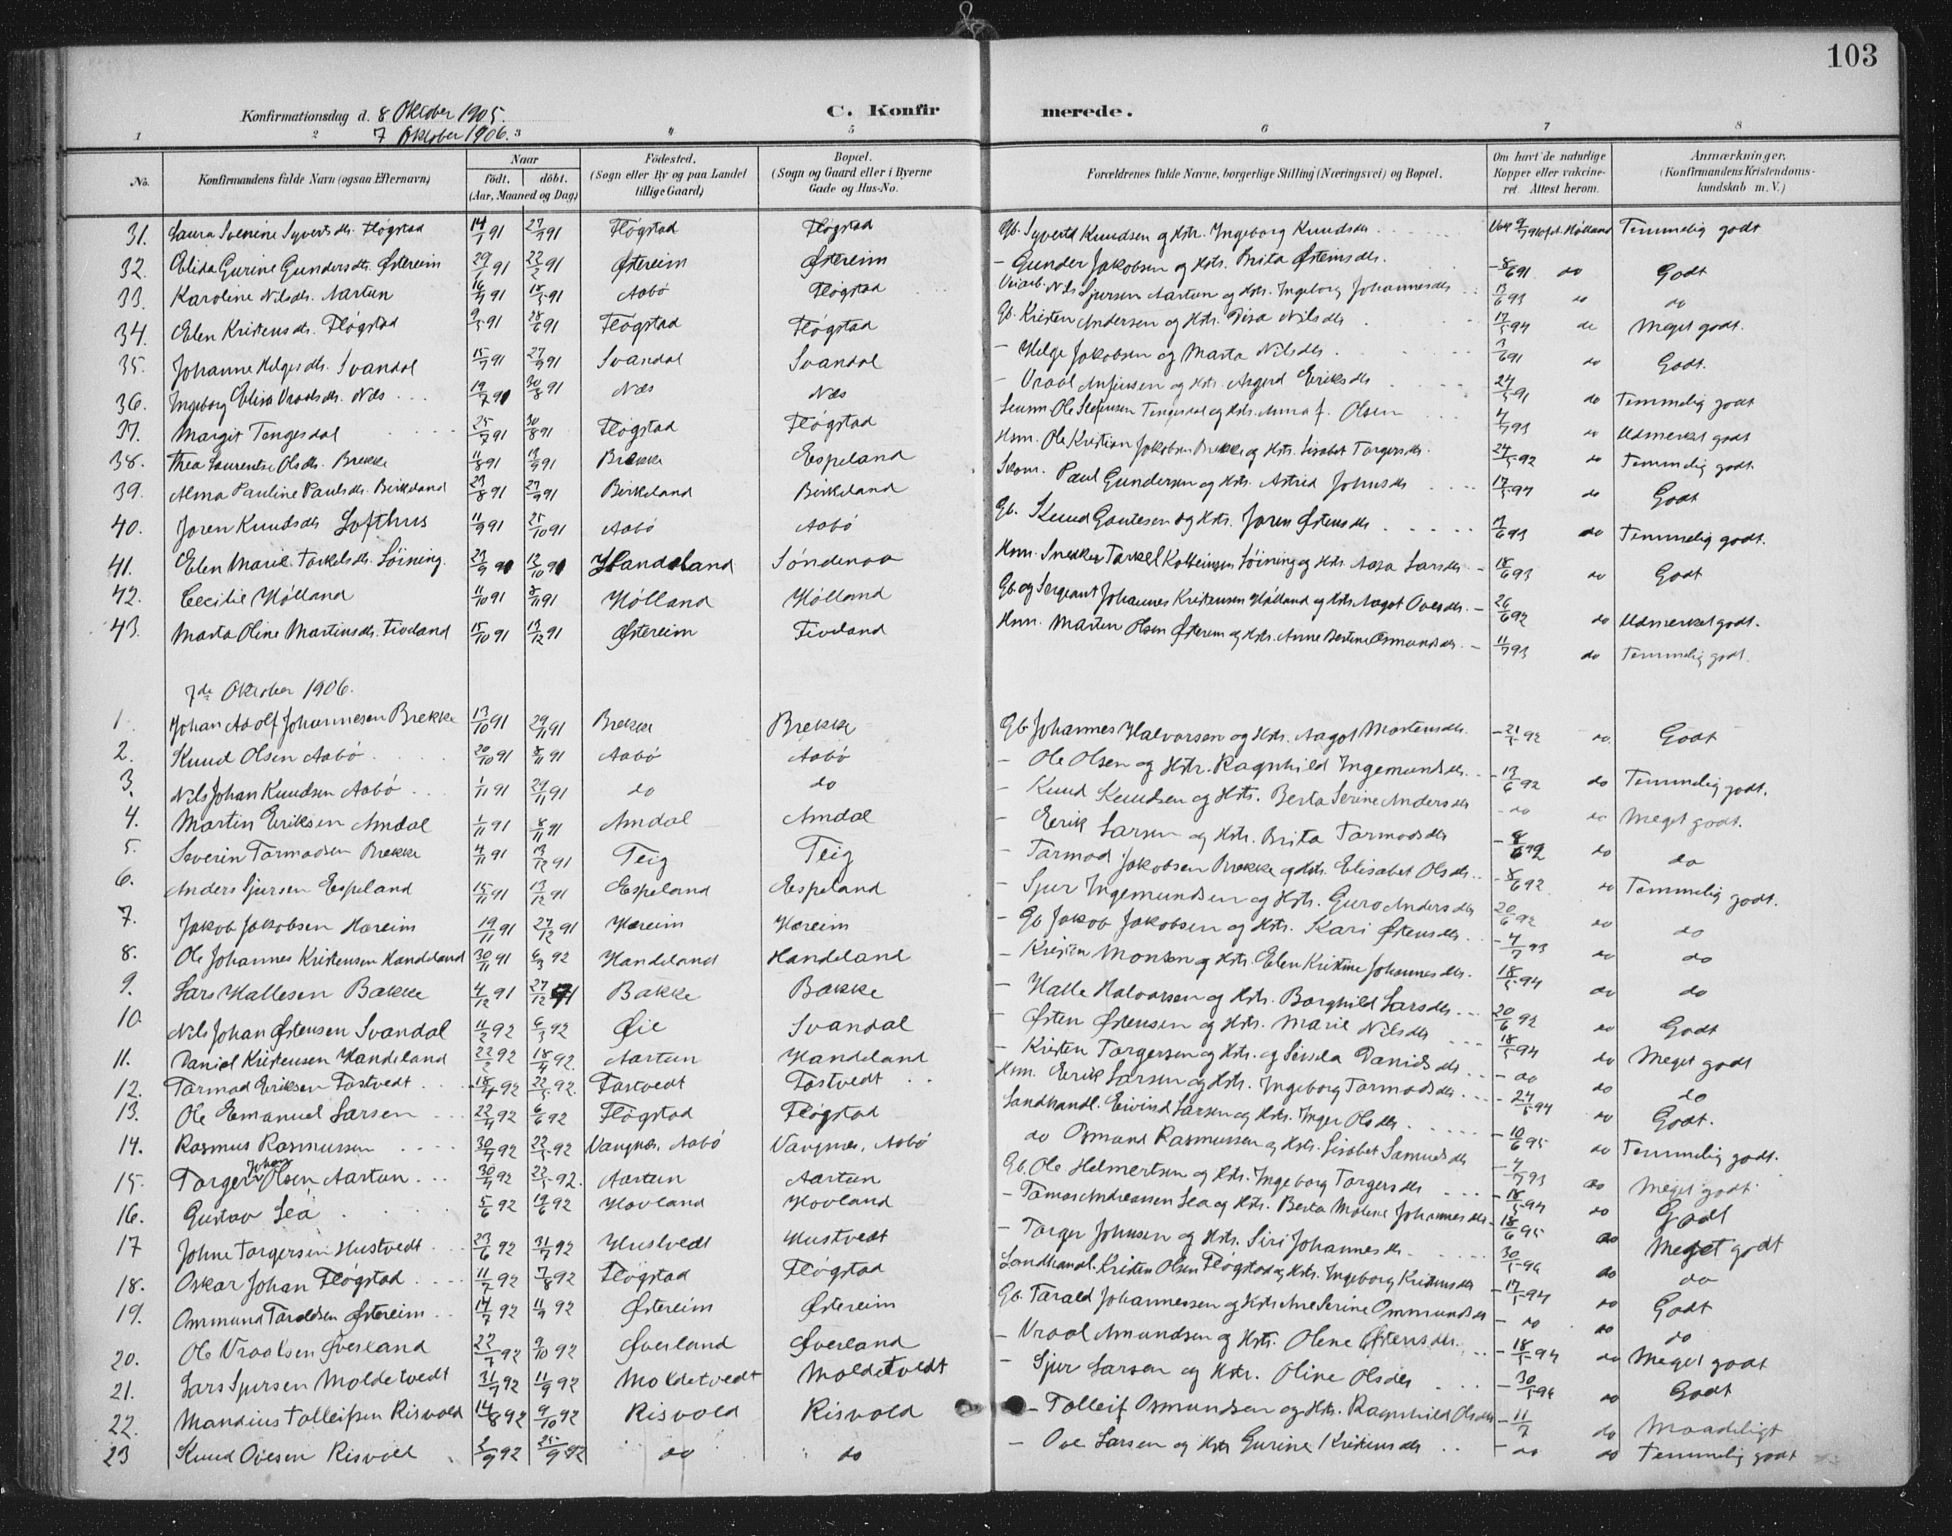 103
Konfirmationsdag d. 8 Oktober 1905.
7 Oktober 1906.
C. Konfirmerede.
1 2 3 4 5 6 7 8
No. Konfirmandens fulde Navn (ogsaa Efternavn) Naar født. døbt. (Aar, Maaned og Dag) Fødested. (Sogn eller By og paa Landet tillige Gaard) Bopæl. (Sogn og Gaard eller i Byerne Gade og Hus-No. Forældrenes fulde Navne, borgerlige Stilling (Næringsvei) og Bopæl. Om havt de naturlige Kopper eller vakcineret. Attest herom. Anmærkninger. (Konfirmandens Kristendomskundskab m. V.)
31. Laura Severine Syvertsdtr. Fløgstad 14/7 91 27/9 91 Fløgstad Fløgstad Gb. Syvert Knudsen og Hstr. Ingeborg Knudsdtr. Temmelig godt
32. Elida Gurine Gundersdtr. Østereim 29/1 91 22/2 91 Østereim Østereim - Gunder Jakobsen og Hstr. Brita Østensdtr. - 8/6 91 do Godt
33. Karoline Nilsdtr. Aartun 16/4 91 18/5 91 Aabø Fløgstad Nils Sjursen Aartun og Hstr. Ingeborg Johannesdtr 13/6 93 do do
34. Elen Kristensdtr. Fløgstad 9/5 91 28/6 91 Fløgstad Fløgstad Gb. Kristen Andersen og Hstr. Gisa Nilsdtr 17/5 94 do Meget godt.
35. Johanne Helgesdtr. Svandal 15/7 91 27/9 91 Svandal Svandal - Helge Jakobsen og Marta Nilsdtr. 7/6 91 do Godt.
36. Ingeborg Elisa Vraalsdtr. Næs 19/7 91 30/8 91 Næs Næs - Vraal Anfinsen og Hstr. Asgerd Eriksdtr 24/5 91 do Temmelig godt
37. Margit Tengesdal 25/7 91 30/8 91 Fløgstad Fløgstad Ole Stefensen Tengesdal og Hstr. Anna J. Olsen 4/7 93 do Udmerket godt
38. Thea Laurentse Olsdtr. Brekke 11/8 91 13/9 91 Brekke Espeland Hsm. Ole Kristian Jakobsen Brekke og Hstr. Lisabet Torgersdtr. 24/5 92 do Temmelig godt.
39. Alma Pauline Paulsdtr. Birkeland 23/8 91 27/9 91 Birkeland Birkeland Skom. Paul Gundersen og Hstr. Astrid Johnsdtr 17/5 94 do Godt
40. Joren Knudsdtr Lofthus 11/9 91 25/10 91 Aabø Aabø Gb. Knud Gautesen og Hstr. Joren Østensdtr 7/6 93 do Temmelig godt.
41. Elen Marie Torkelsdtr. Løining. 23/9 91 12/10 91 Handeland Søndenaa Hsm. Snekker Torkel Kolbeinsen Løining og Hstr. Aasa Larsdtr - 18/6 93 do Godt
42. Cecilie Hølland 11/10 91 8/11 91 Hølland Hølland Gb. og Sergeant Johannes Kristensen Hølland og Hstr. Aagot Ovesdtr. - 26/6 92 do Udmerket godt.
43. Marta Oline Martinsdtr. Tiveland 15/10 91 13/12 91 Østereim Tiveland Hsm. Martin Olsen Østereim og Hstr. Anne Bertine Osmundsdtr. - 11/7 93 do Temmelig godt.
7de Oktober 1906.
1. Johan Adolf Johannesen Brekke 13/10 91 29/11 91 Brekke Brekke Gb Johannes Halvorsen og Hstr. Aagot Mortensdtr. - 21/5 92 do Godt
2. Knud Olsen Aabø 20/10 91 8/11 91 Aabø Aabø - Ole Olsen og Hstr. Ragnhild Ingemundsdtr. - 13/6 92 do Temmelig godt.
3. Nils Johan Knudsen Aabø 1/11 91 29/11 91 do do - Knud Knudsen og Hstr. Berta Serine Andersdtr - do do Meget godt.
4. Martin Eriksen Amdal 1/11 91 8/11 91 Amdal Amdal - Erik Larsen og Hstr. Brita Tormodsdtr - 8/6 92 do do
5. Severin Tormodsen Brekke 4/11 91 13/12 91 Teig Teig - Tormod Jakobsen Brekke og Hstr. Elisabet Olsdtr. - 8/6 92 do Temmelig godt.
6. Anders Sjursen Espeland 15/11 91 13/12 91 Espeland Espeland - Sjur Ingemundsen og Hstr. Guro Andersdtr 20/6 92 do do
7. Jakob Jakobsen Hareim 19/11 91 27/12 91 Hareim Hareim - Gb Jakob Jakobsen og Hstr. Kari Østensdtr. - 4/7 93 do do
8. Ole Johannes Kristensen Handeland 30/11 91 6/3 92 Handeland Handeland - Kristen Monsen og Hstr. Elen Kristine Johannesdtr. 18/5 94 do do
9. Lars Hallesen Bakke 4/12 91 27/12 91 Bakke Bakke - Halle Halvorsen og Hstr. Borghild Larsdtr. 20/6 92 do Godt
10. Nils Johan Østensen Svandal 11/2 92 6/3 92 Øie Svandal - Østen Østensen og Hstr. Marie Nilsdtr 18/5 94 do Meget godt
11. Daniel Kristensen Handeland 22/2 92 18/4 92. Aartun Handeland - Kristen Torgersen og Hstr. og Sissela Danielsdtr - do do do
12. Tormod Eriksen Tostvedt 18/4 92 22/5 92. Tostvedt Tostvedt Hsm. Erik Larsen og Hstr. Ingeborg Tormodsdtr. - 24/5 94 do Godt.
13. Ole Emanuel Larsen 22/4 92 6/6 92 Fløgstad Fløgstad Landhandl. Eivind Larsen og Hstr. Inger Olsdtr. - 10/6 95 do Temmelig godt.
14. Rasmus Rasmussen 30/4 92 22/5 92 Vangnes, Aabø Vangnes, Aabø do Osmund Rasmussen og Hstr. Lisabet Samuelsdtr - 4/7 93 do Meget godt.
15. Torger Johan Olsen Aartun 30/4 92 22/5 92. Aartun Aartun Gb. Ole Helmertsen og Hstr. Ingeborg Torgersdtr - 18/5 94 do Godt
16. Gustav Lea 5/6 92 19/6 92 Hovland Hovland - Tomas Andreassen Lea og Hstr. Berta Malene Johannesdtr - 18/6 95 do Meget godt
17 Johne Torgersen Hustvedt 23/6 92 31/7 92 Hustvedt Hustvedt - Torger Johnsen og Hstr. Siri Johannesdtr. 30/5 96 do do
18. Oskar Johan Fløgstad 11/7 92 7/8 92 Fløgstad Fløgstad Landhandl. Kristen Olsen Fløgstad og Hstr. Ingeborg Kristensdtr - 17/5 94 do Godt
19. Ommund Taraldsen Østereim 14/7 92 11/9 92 Østereim Østereim Gb. Tarald Johannessen og Hstr. Ane Serine Ommundsdtr - do do do
20. Ole Vraalsen Øverland 22/7 92 9/10 92 Øverland Øverland - Vraal Amundsen og Hstr. Olene Østensdtr. - 18/5 94 do Meget godt
21. Lars Sjursen Moldetvedt 31/7 92 11/9 92 Moldetvedt Moldetvedt - Sjur Larsen og Hstr. Oline Olsdtr - 30/5 96 do Godt
22. Mandius Tolleifsen Risvold 14/8 92 9/10 92 Risvold Risvold - Tolleif Osmundsen og Hstr. Ragnhild Olsdtr - 11/7 do Maadeligt
23 Knud Ovesen Risvold 2/9 92 25/9 92 do do - Ove Larsen og Hstr Gurine Kristensdtr - do do Temmelig godt